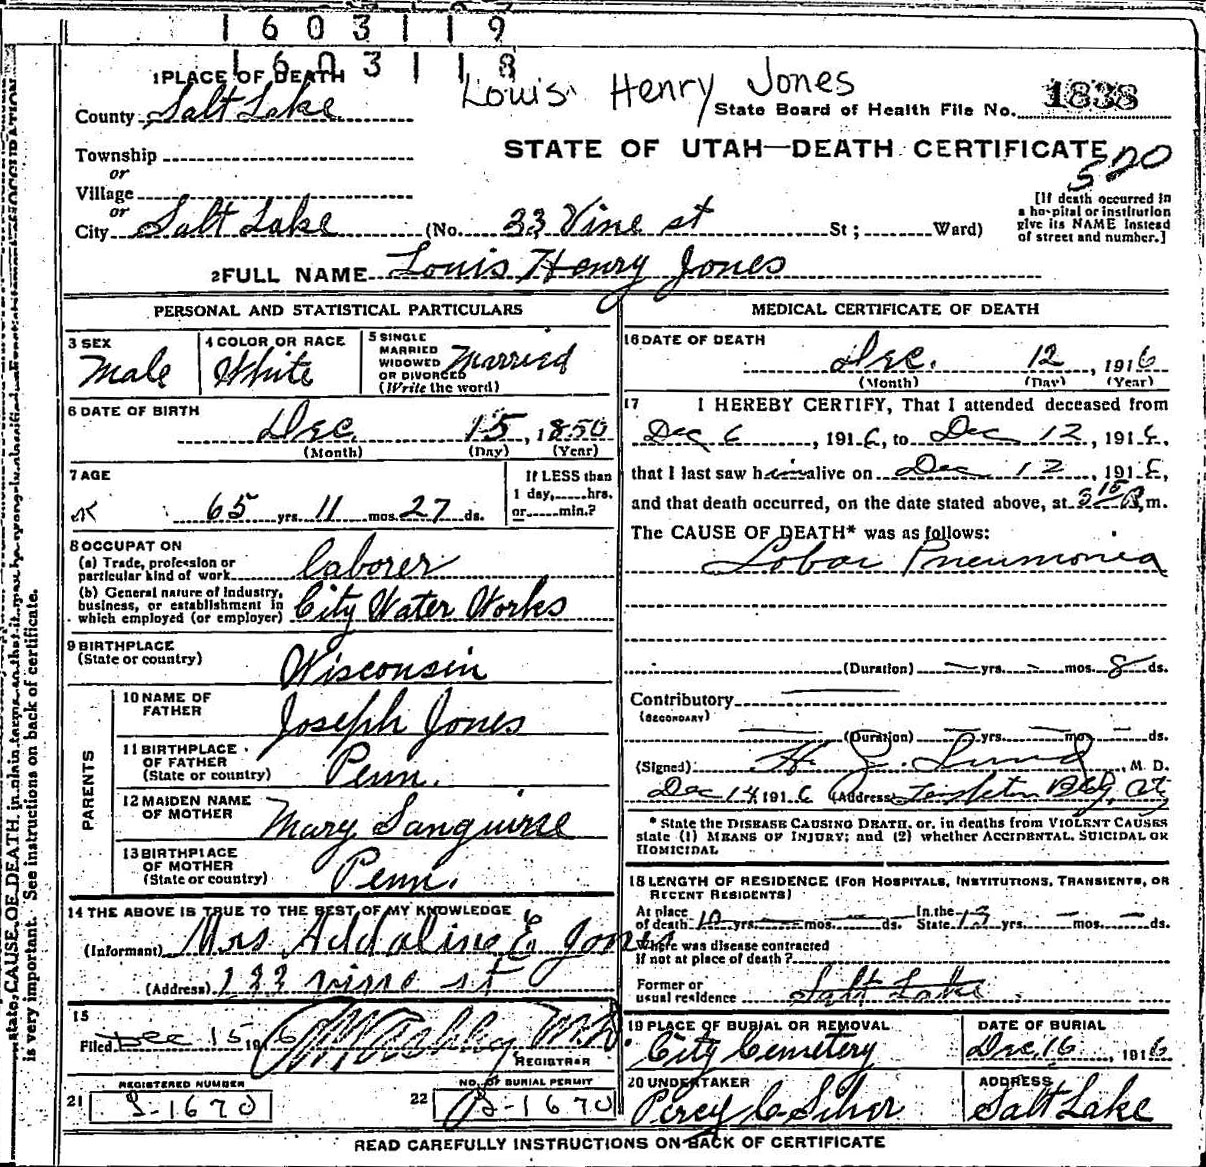 1 6 0 3 1 1 9
1 6 0 3 1 1 8
1 PLACE OF DEATH
Louis Henry Jones
County Salt Lake
State Board of Health File No. 1838
Township
or
Village
or
STATE OF UTAH—DEATH CERTIFICATE
520
City Salt Lake (No. 33 Vine st St; Ward)
[If death occurred in
a hospital or institution
give its NAME instead
of street and number.]
2 FULL NAME Louis Henry Jones
PERSONAL AND STATISTICAL PARTICULARS
3 SEX
Male
4 COLOR OR RACE
White
5 SINGLE
MARRIED
WIDOWED
OR DIVORCED
(Write the word)
Married
6 DATE OF BIRTH
Dec. 15, 1850
(Month) (Day) (Year)
7 AGE
65 yrs. 11 mos. 27 ds.
If LESS than
1 day, hrs.
or min.?
8 OCCUPATION
(a) Trade, profession or
particular kind of work laborer
(b) General nature of Industry,
business, or establishment in
which employed (or employer) City Water Works
9 BIRTHPLACE
(State or country)
Wisconsin
PARENTS
10 NAME OF
FATHER
Joseph Jones
11 BIRTHPLACE
OF FATHER
(State or country)
Penn.
12 MAIDEN NAME
OF MOTHER
Mary Sanguine
13 BIRTHPLACE
OF MOTHER
(State or country)
Penn.
14 THE ABOVE IS TRUE TO THE BEST OF MY KNOWLEDGE
(Informant) Mrs Addaline E Jones
(Address) 133 vine st
15
Filed Dec 15 1916
REGISTRAR
REGISTERED NUMBER
21 S-1670
NO. OF BURIAL PERMIT
22 S-1670
MEDICAL CERTIFICATE OF DEATH
16 DATE OF DEATH
Dec. 12, 1916
(Month) (Day) (Year)
17 I HEREBY CERTIFY, That I attended deceased from
Dec 6, 1916, to Dec 12, 1916,
that I last saw him alive on Dec 12, 1916,
and that death occurred, on the date stated above, at m.
The CAUSE OF DEATH* was as follows:
Lobar Pneumonia
(Duration) yrs. mos. 8 ds.
Contributory
(SECONDARY)
(Duration) yrs. mos. ds.
(Signed) , M. D.
Dec 14, 1916 (Address) Templeton Bldg, City
* State the DISEASE CAUSING DEATH, or, in deaths from VIOLENT CAUSES
state (1) MEANS OF INJURY; and (2) whether ACCIDENTAL, SUICIDAL OR
HOMICIDAL
18 LENGTH OF RESIDENCE (FOR HOSPITALS, INSTITUTIONS, TRANSIENTS, OR
RECENT RESIDENTS)
At place
of death 10 yrs. mos. ds.
In the
State 19 yrs. mos. ds.
Where was disease contracted
if not at place of death?
Former or
usual residence Salt Lake
19 PLACE OF BURIAL OR REMOVAL
City Cemetery
DATE OF BURIAL
Dec 16, 1916
20 UNDERTAKER
Percy
ADDRESS
Salt Lake
READ CAREFULLY INSTRUCTIONS ON BACK OF CERTIFICATE
is very important. See instructions on back of certificate.